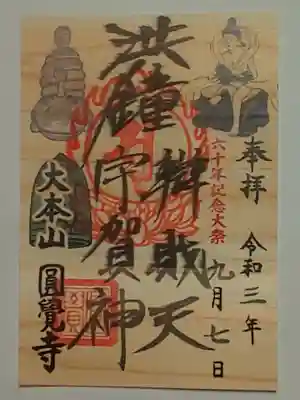 奉拝
令和三年
九月七日
六十年記念大祭
洪鐘
辨財天
宇賀神
大本山
圓覺寺